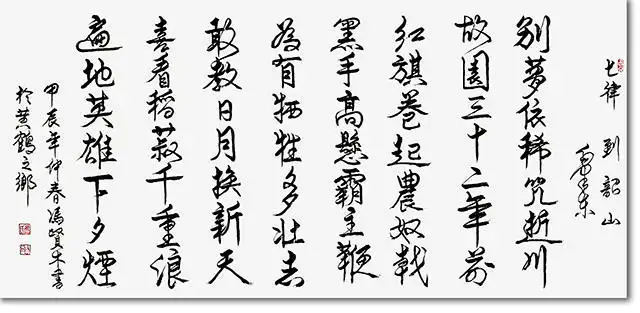 七律 到韶山
毛泽东
别夢依稀咒逝川
故園三十二年前
红旗卷起農奴戟
黑手高懸霸主鞭
為有牺牲多壮志
敢教日月换新天
喜看稻菽千重浪
遍地英雄下夕煙
甲辰年仲春馮賢木書
於黄鶴之鄉